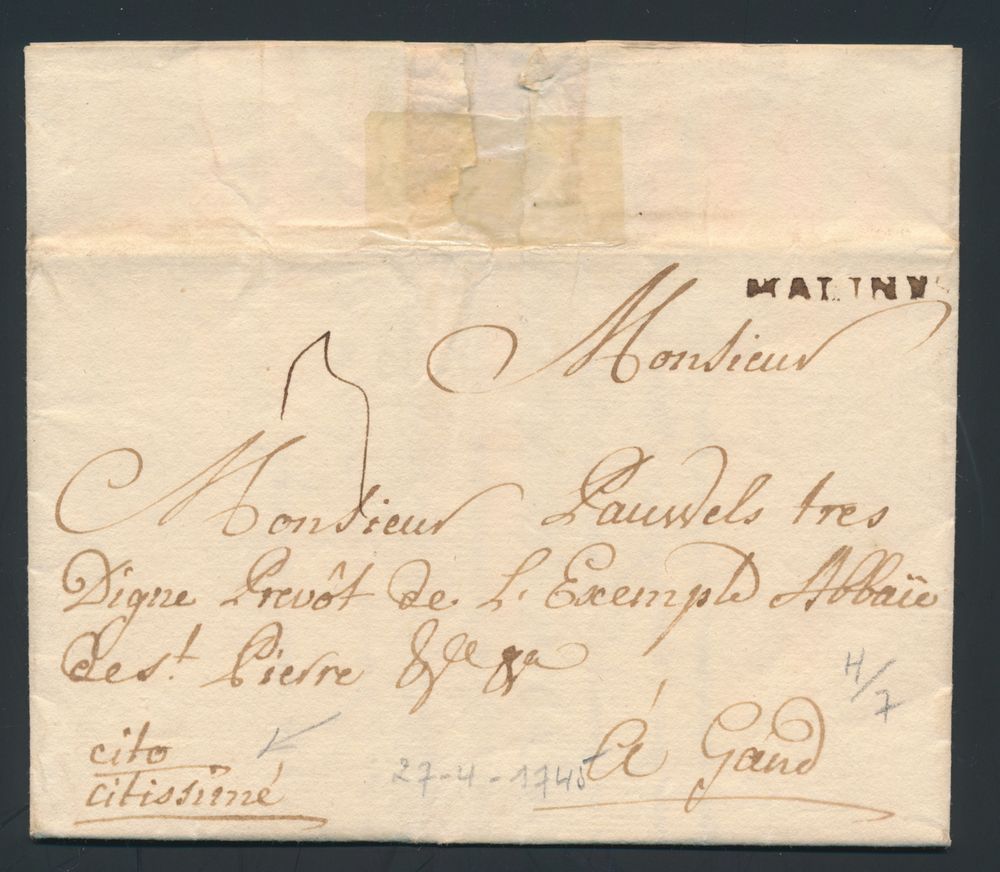 MALINES
Monsieur
3
Monsieur Pauwels tres
Digne Prevôt de L'Exempte Abbaïe
de st. Pierre &c &a
H/7
cito
citissimé
à Gand
27-4-1745